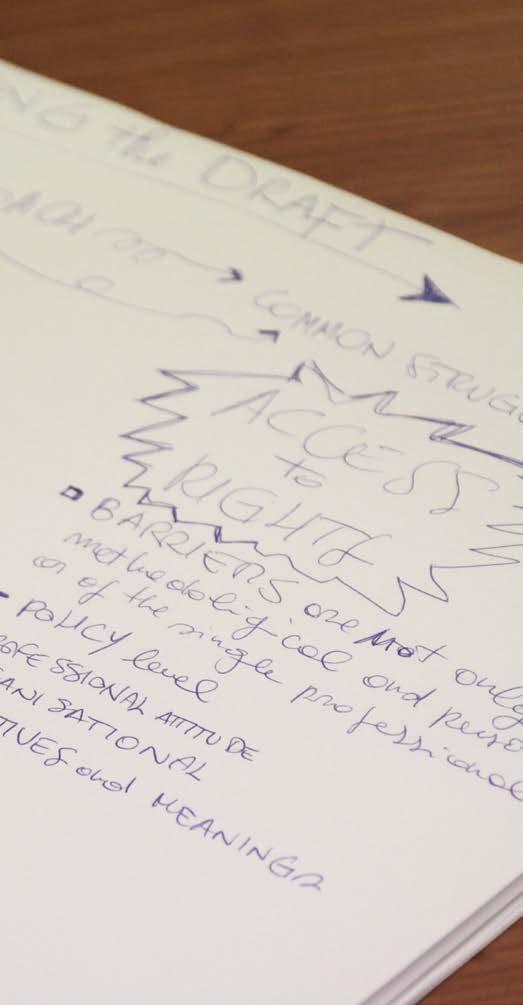 NG the DRAFT
OACH
COMMON STRUG
ACCESS
to
RIGHTS
BARRIERS are not only
methodological and perso
or of the single professional
- POLICY level
OFESSIONAL ATTITUDE
ANISATIONAL
TIVES and MEANINGS